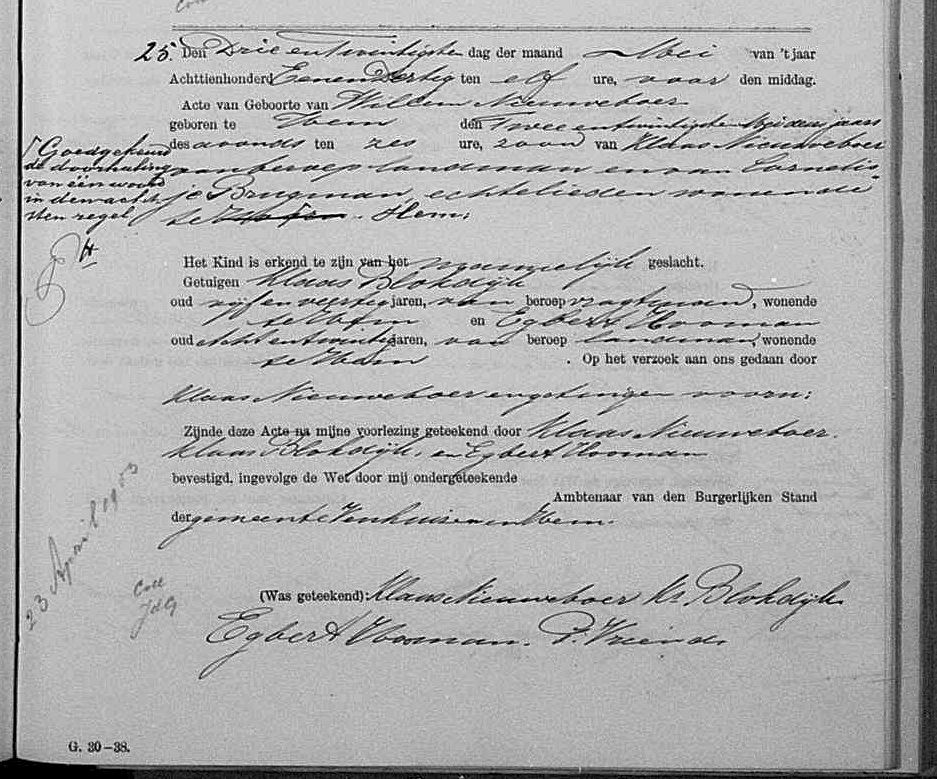 25. Den Drie en twintigste dag der maand Mei van 't jaar
Achttienhonderd Eenendertig ten elf ure, voor den middag.
Acte van Geboorte van Willem Nieuweboer
geboren te Hem den Twee en twintigste Mei dezes jaars
des avonds ten zes ure, zoon van Klaas Nieuweboer
van beroep landman en van Cornelis-
je Brugman, echtelieden wonende
te Hem;
Goedgekeurd
de doorhaling
van een woord
in den achtsten
regel
Het Kind is erkend te zijn van het mannelijk geslacht.
Getuigen Klaas Blokdijk
oud vijf en veertig jaren, van beroep vragtman, wonende
te Hem en Egbert Hooman
oud acht en twintig jaren, van beroep landman, wonende
te Hem. Op het verzoek aan ons gedaan door
Klaas Nieuweboer en getuigen voorn:
Zijnde deze Acte na mijne voorlezing geteekend door Klaas Nieuweboer.
Klaas Blokdijk. en Egbert Hooman
bevestigd, ingevolge de Wet door mij ondergeteekende
Ambtenaar van den Burgerlijken Stand
der gemeente Venhuizen en Hem.
23 April 1903
Coll
JdG
(Was geteekend): Klaas Nieuweboer Ks Blokdijk
Egbert Hooman. P. Vriend.
G. 30–38.